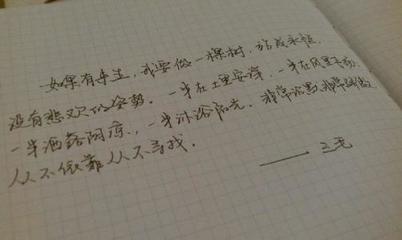 如果有来生，我要做一棵树，站成永恒，
没有悲欢的姿势。一半在土里安详，一半在风里飞扬，
一半洒落阴凉，一半沐浴阳光，非常沉默非常骄傲，
从不依靠从不寻找。
—— 三毛